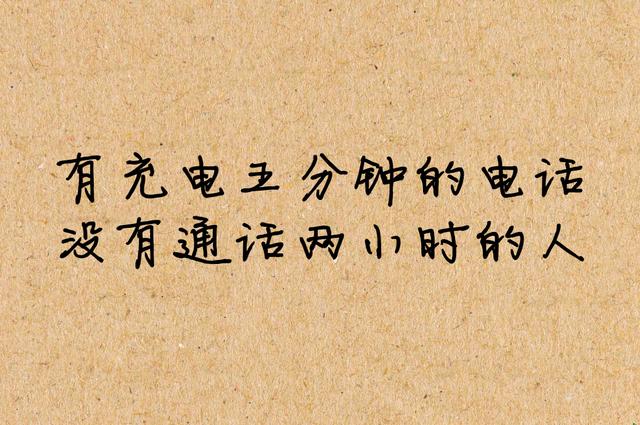 有充电五分钟的电话
没有通话两小时的人